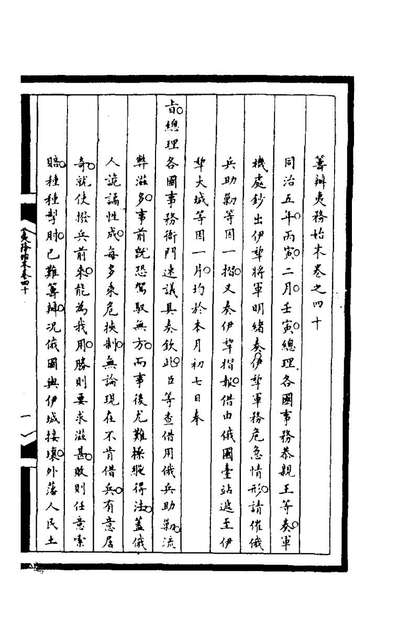 籌辦夷務始末卷之四十
同治五年丙寅二月壬寅○總理各國事務恭親王等奏○軍
機處鈔出伊犂將軍明緒奏○伊犂軍務危急情形○請催俄
兵助勦等因一摺○又奏伊犂摺報○借由俄國臺站遞至伊
犂大城等因一片○均於本月初七日奉
旨○總理各國事務衙門速議具奏○欽此○臣等查借用俄兵助勦○流
弊滋多○事前旣恐駕馭無方○而事後尤難操縱得法○蓋俄
人詭譎性成○每多乘危挾制○無論現在不肯借兵○有意居
奇○就使撥兵前來○能為我用○勝則要求滋甚○敗則任意索
賠○種種掣肘○已難籌辦○況俄國與伊城接壤○外藩人民土
夷務始末卷四十
一